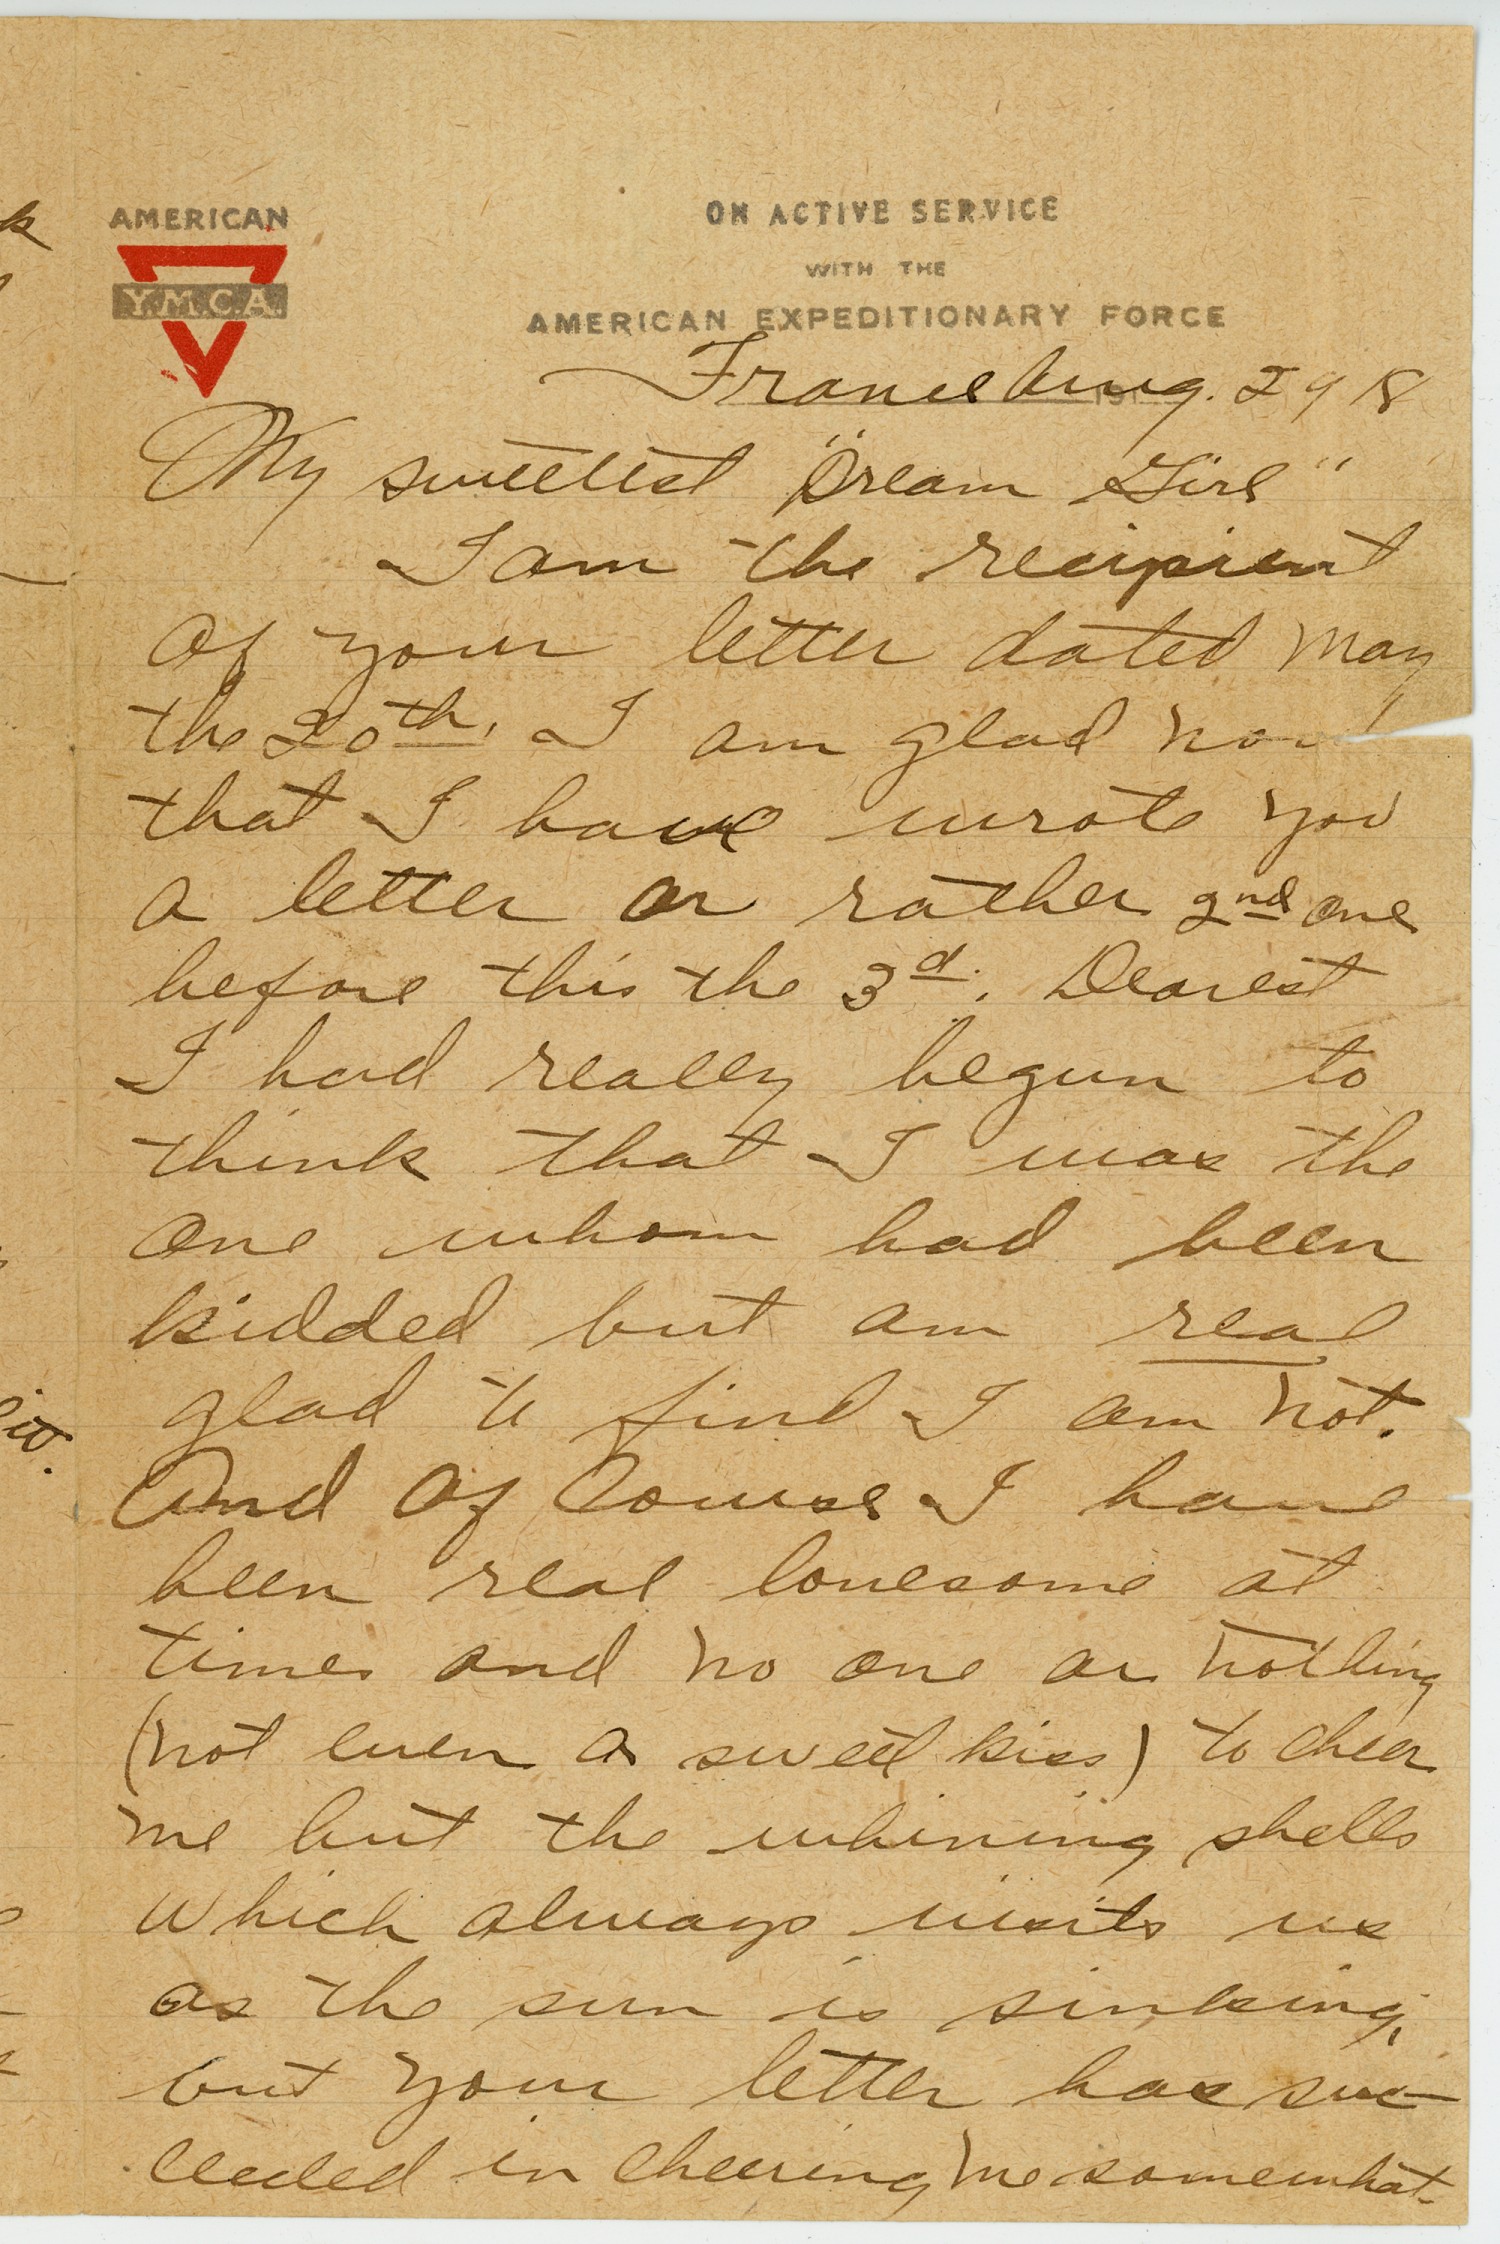 AMERICAN
Y.M.C.A.
ON ACTIVE SERVICE
WITH THE
AMERICAN EXPEDITIONARY FORCE
France Aug. 2 918
My sweetest "Dream Girl"
I am the recipient
of your letter dated May
the 20th. I am glad now
that I have wrote you
a letter or rather 2nd one
before this the 3d. Dearest
I had really begun to
think that I was the
one whom had been
kidded but am real
glad to find I am not.
And of Course I have
been real lonesome at
times and no one or nothing
(not even a sweet kiss) to cheer
me but the whining shells
which always visits us
as the sun is sinking,
but your letter has suc-
ceeded in cheering me somewhat.